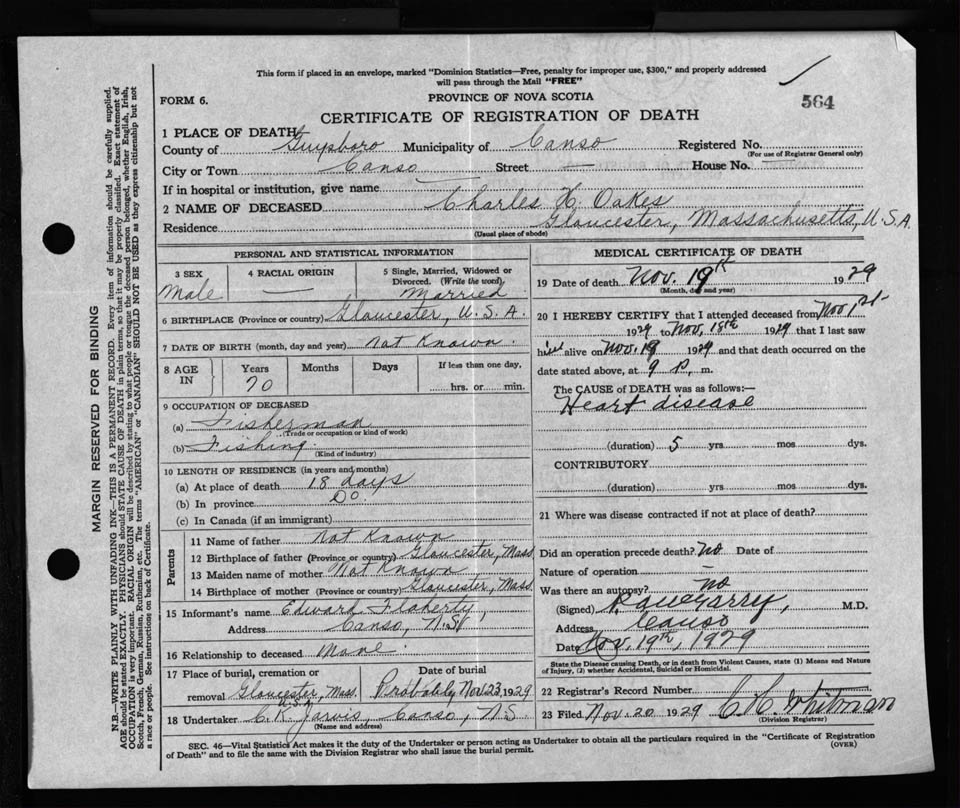 This form if placed in an envelope, marked "Dominion Statistics—Free, penalty for improper use, $300," and properly addressed
will pass through the Mail "FREE"
FORM 6.
PROVINCE OF NOVA SCOTIA
564
CERTIFICATE OF REGISTRATION OF DEATH
1 PLACE OF DEATH
County of Guysboro Municipality of Canso Registered No.
(For use of Registrar General only)
City or Town Canso Street — House No.
If in hospital or institution, give name
2 NAME OF DECEASED Charles H. Oakes
Residence Gloucester, Massachusetts, U.S.A.
(Usual place of abode)
PERSONAL AND STATISTICAL INFORMATION
3 SEX 4 RACIAL ORIGIN 5 Single, Married, Widowed or
Divorced. (Write the word)
Male — Married
6 BIRTHPLACE (Province or country) Gloucester, U.S.A.
7 DATE OF BIRTH (month, day and year) Not Known.
8 AGE IN Years Months Days If less than one day,
70 hrs. or min.
9 OCCUPATION OF DECEASED
(a) Fisherman
(Trade or occupation or kind of work)
(b) Fishing.
(Kind of industry)
10 LENGTH OF RESIDENCE (in years and months)
(a) At place of death 18 days
(b) In province Do.
(c) In Canada (if an immigrant)
Parents
11 Name of father Not Known
12 Birthplace of father (Province or country) Gloucester, Mass
13 Maiden name of mother Not Known
14 Birthplace of mother (Province or country) Gloucester, Mass.
15 Informant's name Edward Flaherty,
Address Canso, N.S.
16 Relationship to deceased None.
17 Place of burial, cremation or Date of burial
removal Gloucester, Mass. Probably Nov 23, 1929
U.S.A.
18 Undertaker C.K. Jarvis, Canso, N.S.
(Name and address)
MEDICAL CERTIFICATE OF DEATH
19 Date of death Nov. 19th 1929
(Month, day and year)
20 I HEREBY CERTIFY that I attended deceased from Nov 1st
1929 to Nov. 18th 1929 that I last saw
him alive on Nov. 18 1929 and that death occurred on the
date stated above, at 9 p. m.
The CAUSE of DEATH was as follows:—
Heart disease
(duration) 5 yrs mos dys.
CONTRIBUTORY
(duration) yrs. mos. dys.
21 Where was disease contracted if not at place of death?
Did an operation precede death? No Date of
Nature of operation
Was there an autopsy? No
(Signed) M.D.
Address Canso
Date Nov. 19th, 1929
State the Disease causing Death, or in death from Violent Causes, state (1) Means and Nature
of Injury, (2) whether Accidental, Suicidal or Homicidal.
22 Registrar's Record Number
23 Filed Nov. 20 1929 C.H. Whitman
(Division Registrar)
SEC. 46—Vital Statistics Act makes it the duty of the Undertaker or person acting as Undertaker to obtain all the particulars required in the "Certificate of Registration
of Death" and to file the same with the Division Registrar who shall issue the burial permit.
(OVER)
MARGIN RESERVED FOR BINDING
N.B.—WRITE PLAINLY WITH UNFADING INK—THIS IS A PERMANENT RECORD. Every item of information should be carefully supplied.
AGE should be stated EXACTLY. PHYSICIANS should STATE CAUSE OF DEATH in plain terms, so that it may be properly classified. Exact statement of
OCCUPATION is very important. RACIAL ORIGIN will be described by stating to what people or tongue the deceased person belonged, whether English, Irish,
Scotch, French, German, Russian, Ruthenian, etc. The terms "AMERICAN" or "CANADIAN" SHOULD NOT BE USED as they express citizenship but not
a race or people. See instructions on back of Certificate.